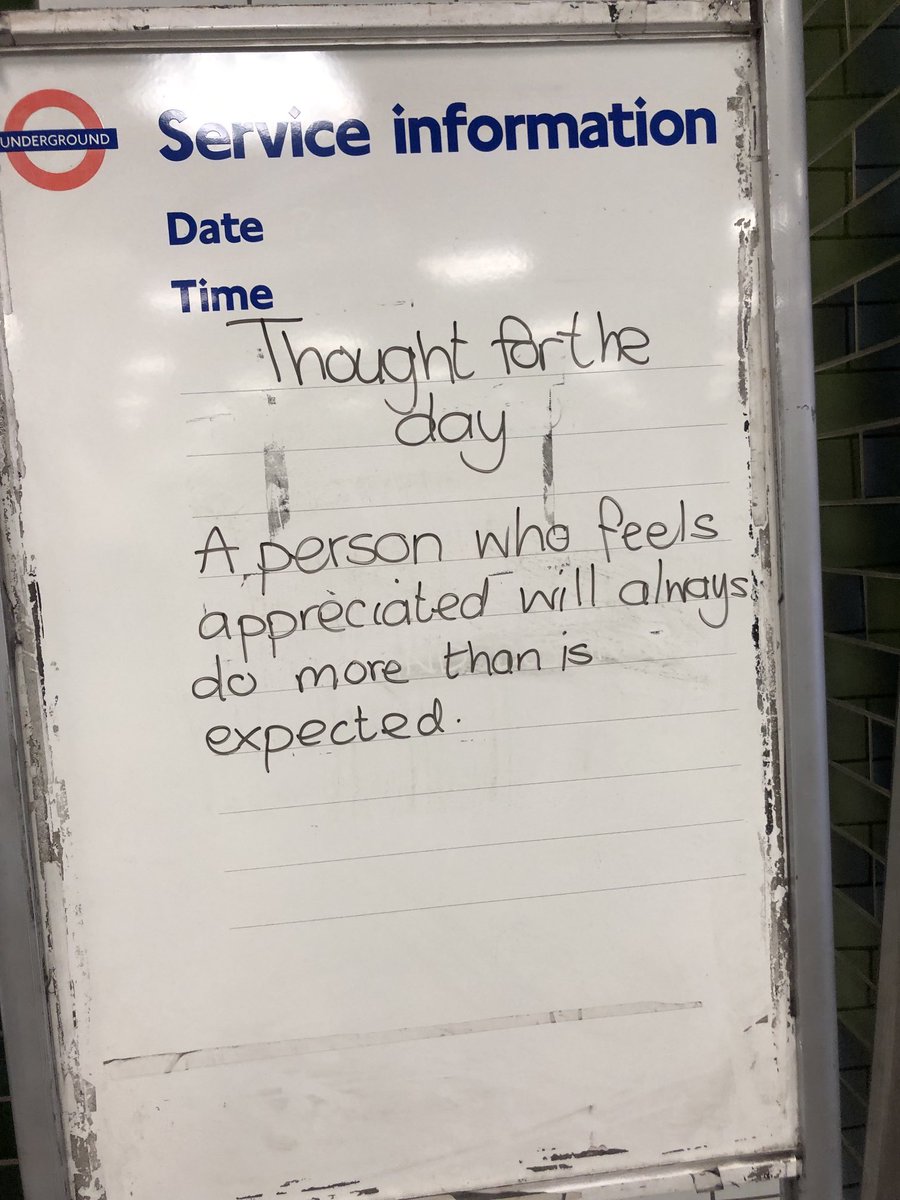 UNDERGROUND
Service information
Date
Time
Thought for the
day
A person who feels
appreciated will always
do more than is
expected.